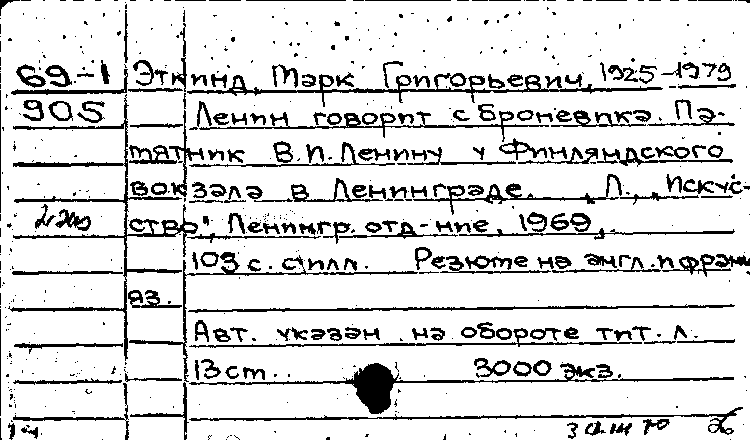 69-1 Эткинд, Марк Григорьевич, 1925-1979
905 Ленин говорит с броневика. Па-
мятник В.И. Ленину у Финляндского
вокзала в Ленинграде. Л., „Искус-
ство", Ленингр. отд-ние, 1969.
103 с. с илл. Резюме на англ. и франц.
яз.
Авт. указан на обороте тит. л.
13 ст. 3000 экз.
70 26